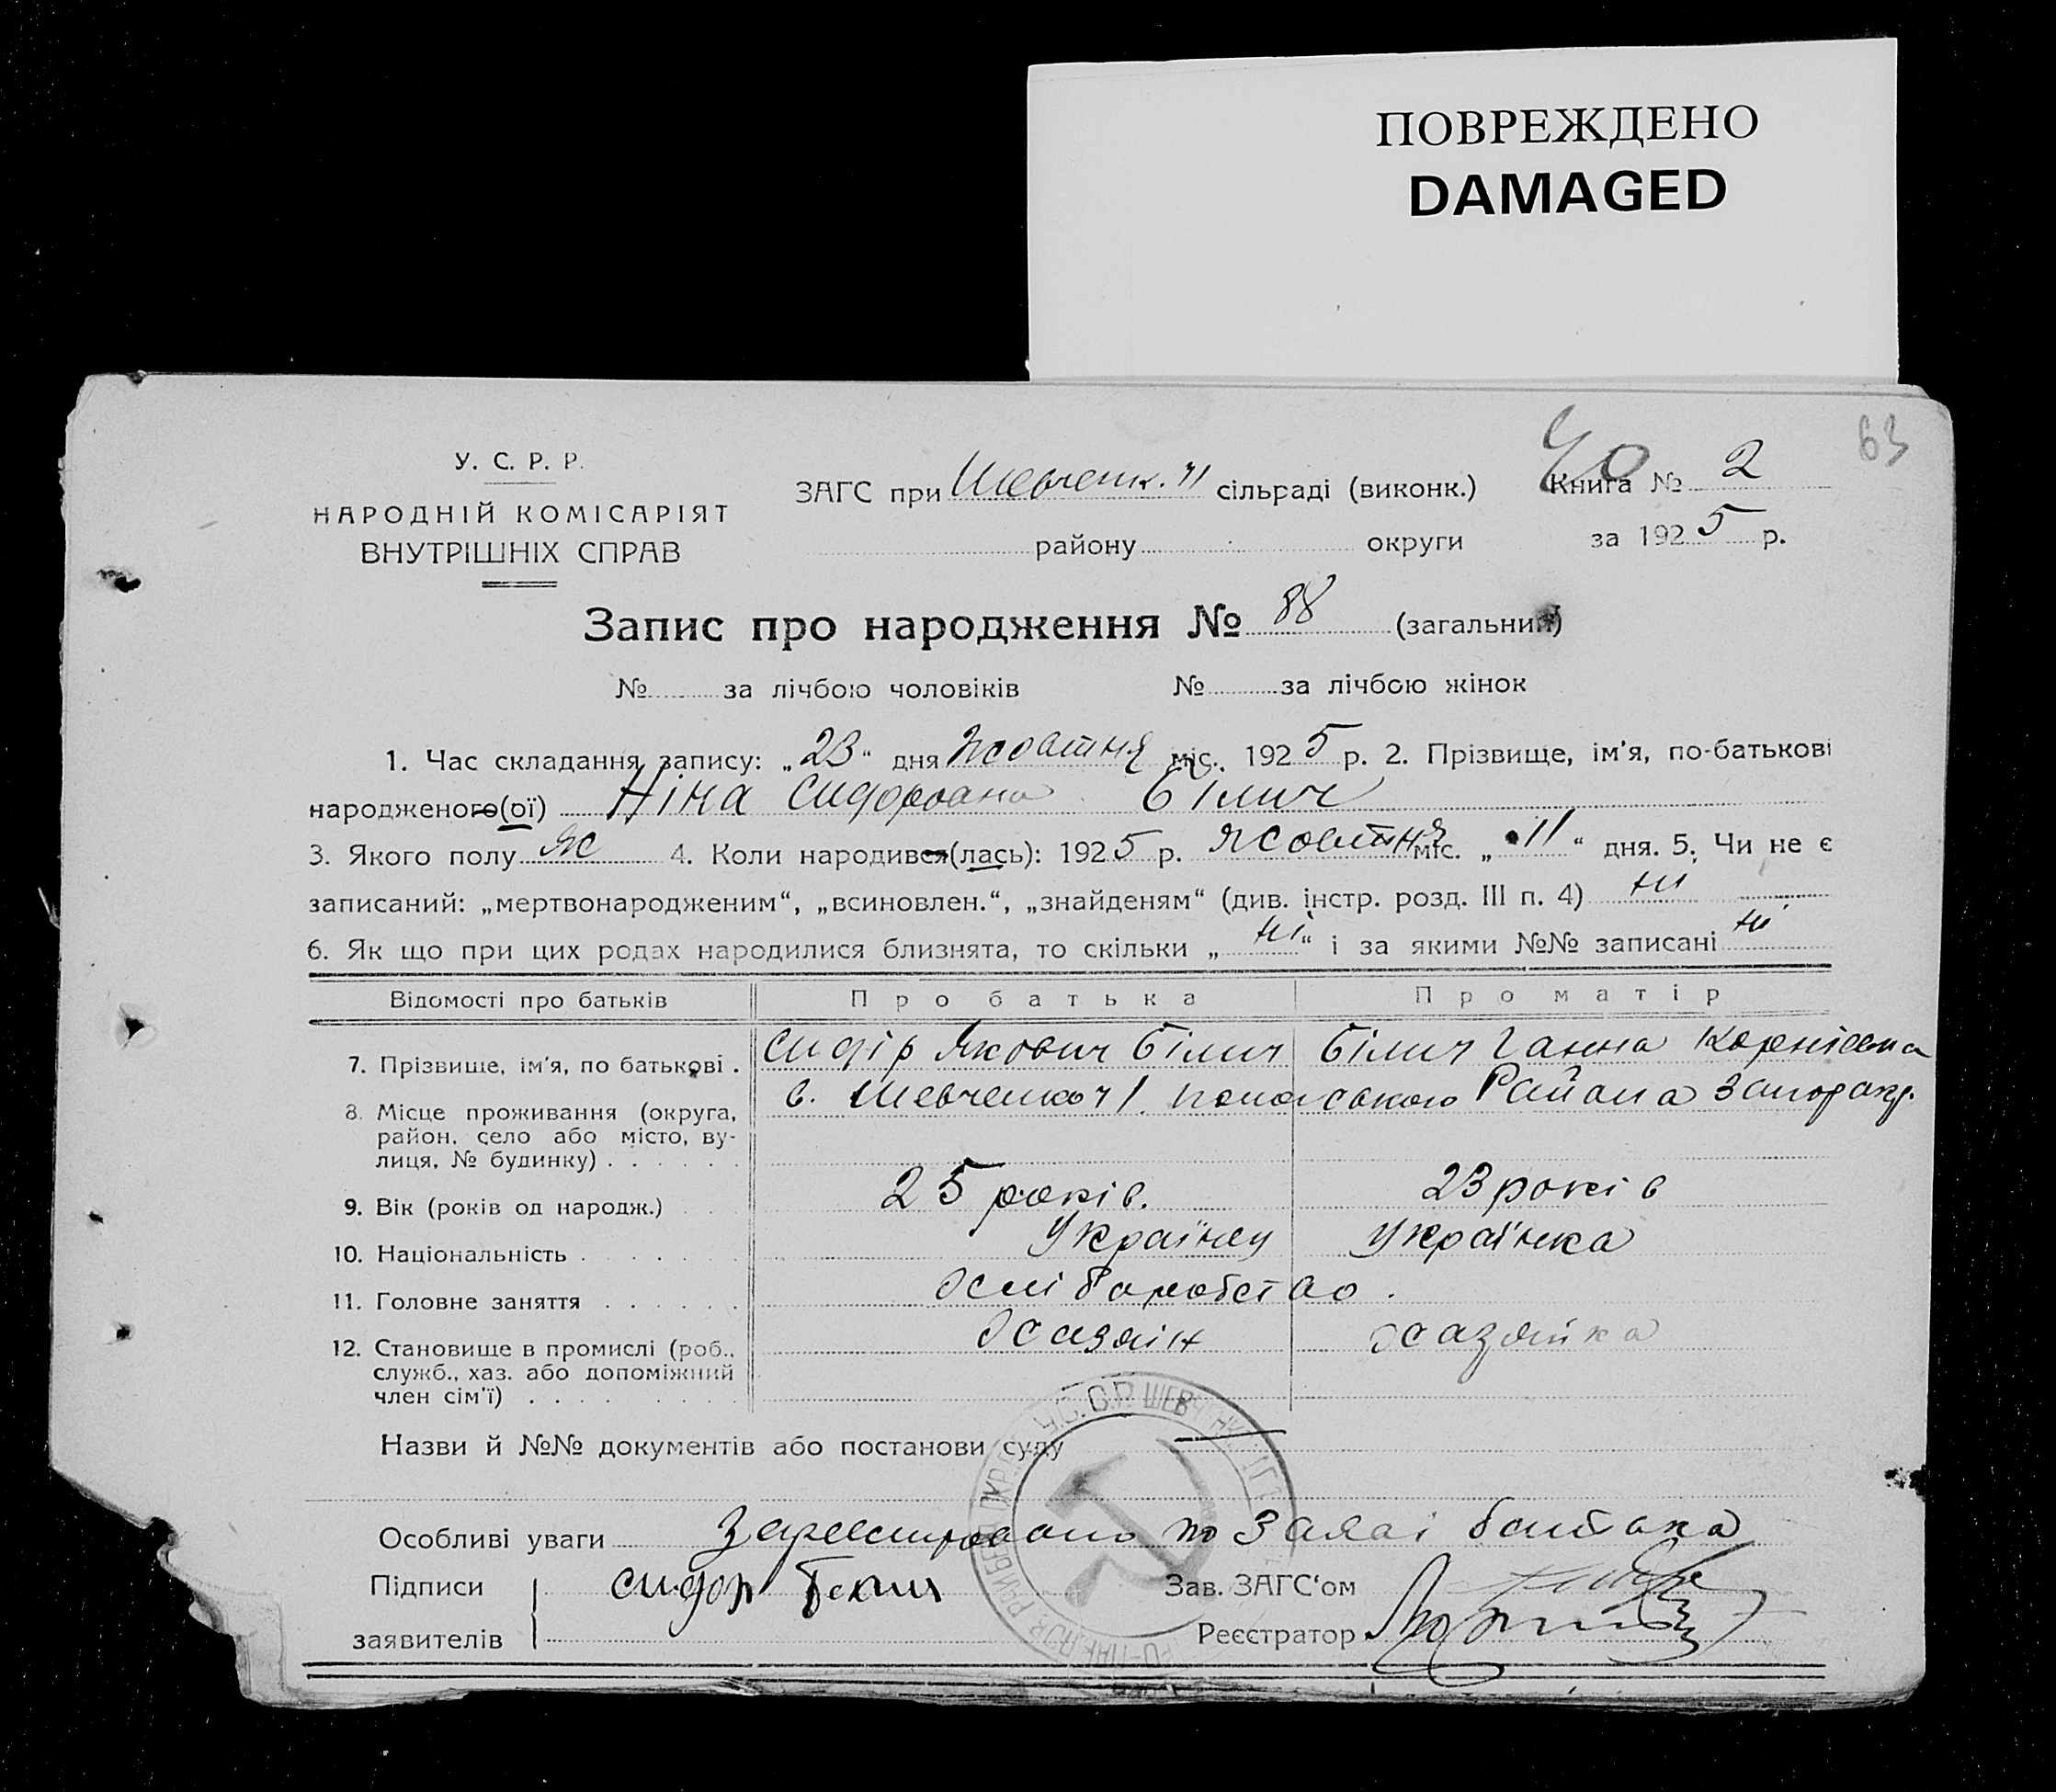 ПОВРЕЖДЕНО
DAMAGED
63
40
У. С. Р. Р.
НАРОДНІЙ КОМІСАРІЯТ
ВНУТРІШНІХ СПРАВ
ЗАГС при Шевченк. сільраді (виконк.)
Книга № 2
району округи
за 1925 р.
Запис про народження № 88 (загальний)
№ за лічбою чоловіків № за лічбою жінок
1. Час складання запису: „23“ дня Жовтня міс. 1925 р. 2. Прізвище, ім'я, по-батькові
народженого(ої) Ніна Сидоровна Білич
3. Якого полу ж 4. Коли народився(лась): 1925 р. жовтня міс. „11“ дня. 5. Чи не є
записаний: „мертвонародженим“, „всиновлен.“, „знайденям“ (див. інстр. розд. III п. 4) ні
6. Як що при цих родах народилися близнята, то скільки „ні“ і за якими №№ записані ні
Відомості про батьків Про батька Про матір
7. Прізвище, ім'я, по батькові . Сидір Якович Білич Білич Ганна Корніевна
8. Місце проживання (округа,
район, село або місто, ву-
лиця, № будинку) . . . . . . с. Района Запор
9. Вік (років од народж.) 25 років. 23 років
10. Національність . Українец Українка
11. Головне заняття . . . . . . Хліборобство.
12. Становище в промислі (роб.,
служб., хаз. або допоміжний
член сім'ї) . . . . Хазяін Хазяйка
Назви й №№ документів або постанови суду
Особливі уваги Зареєстровано по Заяві батька
Підписи
заявителів
Сидор Белич
Зав. ЗАГС'ом
Реєстратор
У.С.Р.Р. ШЕВЧ